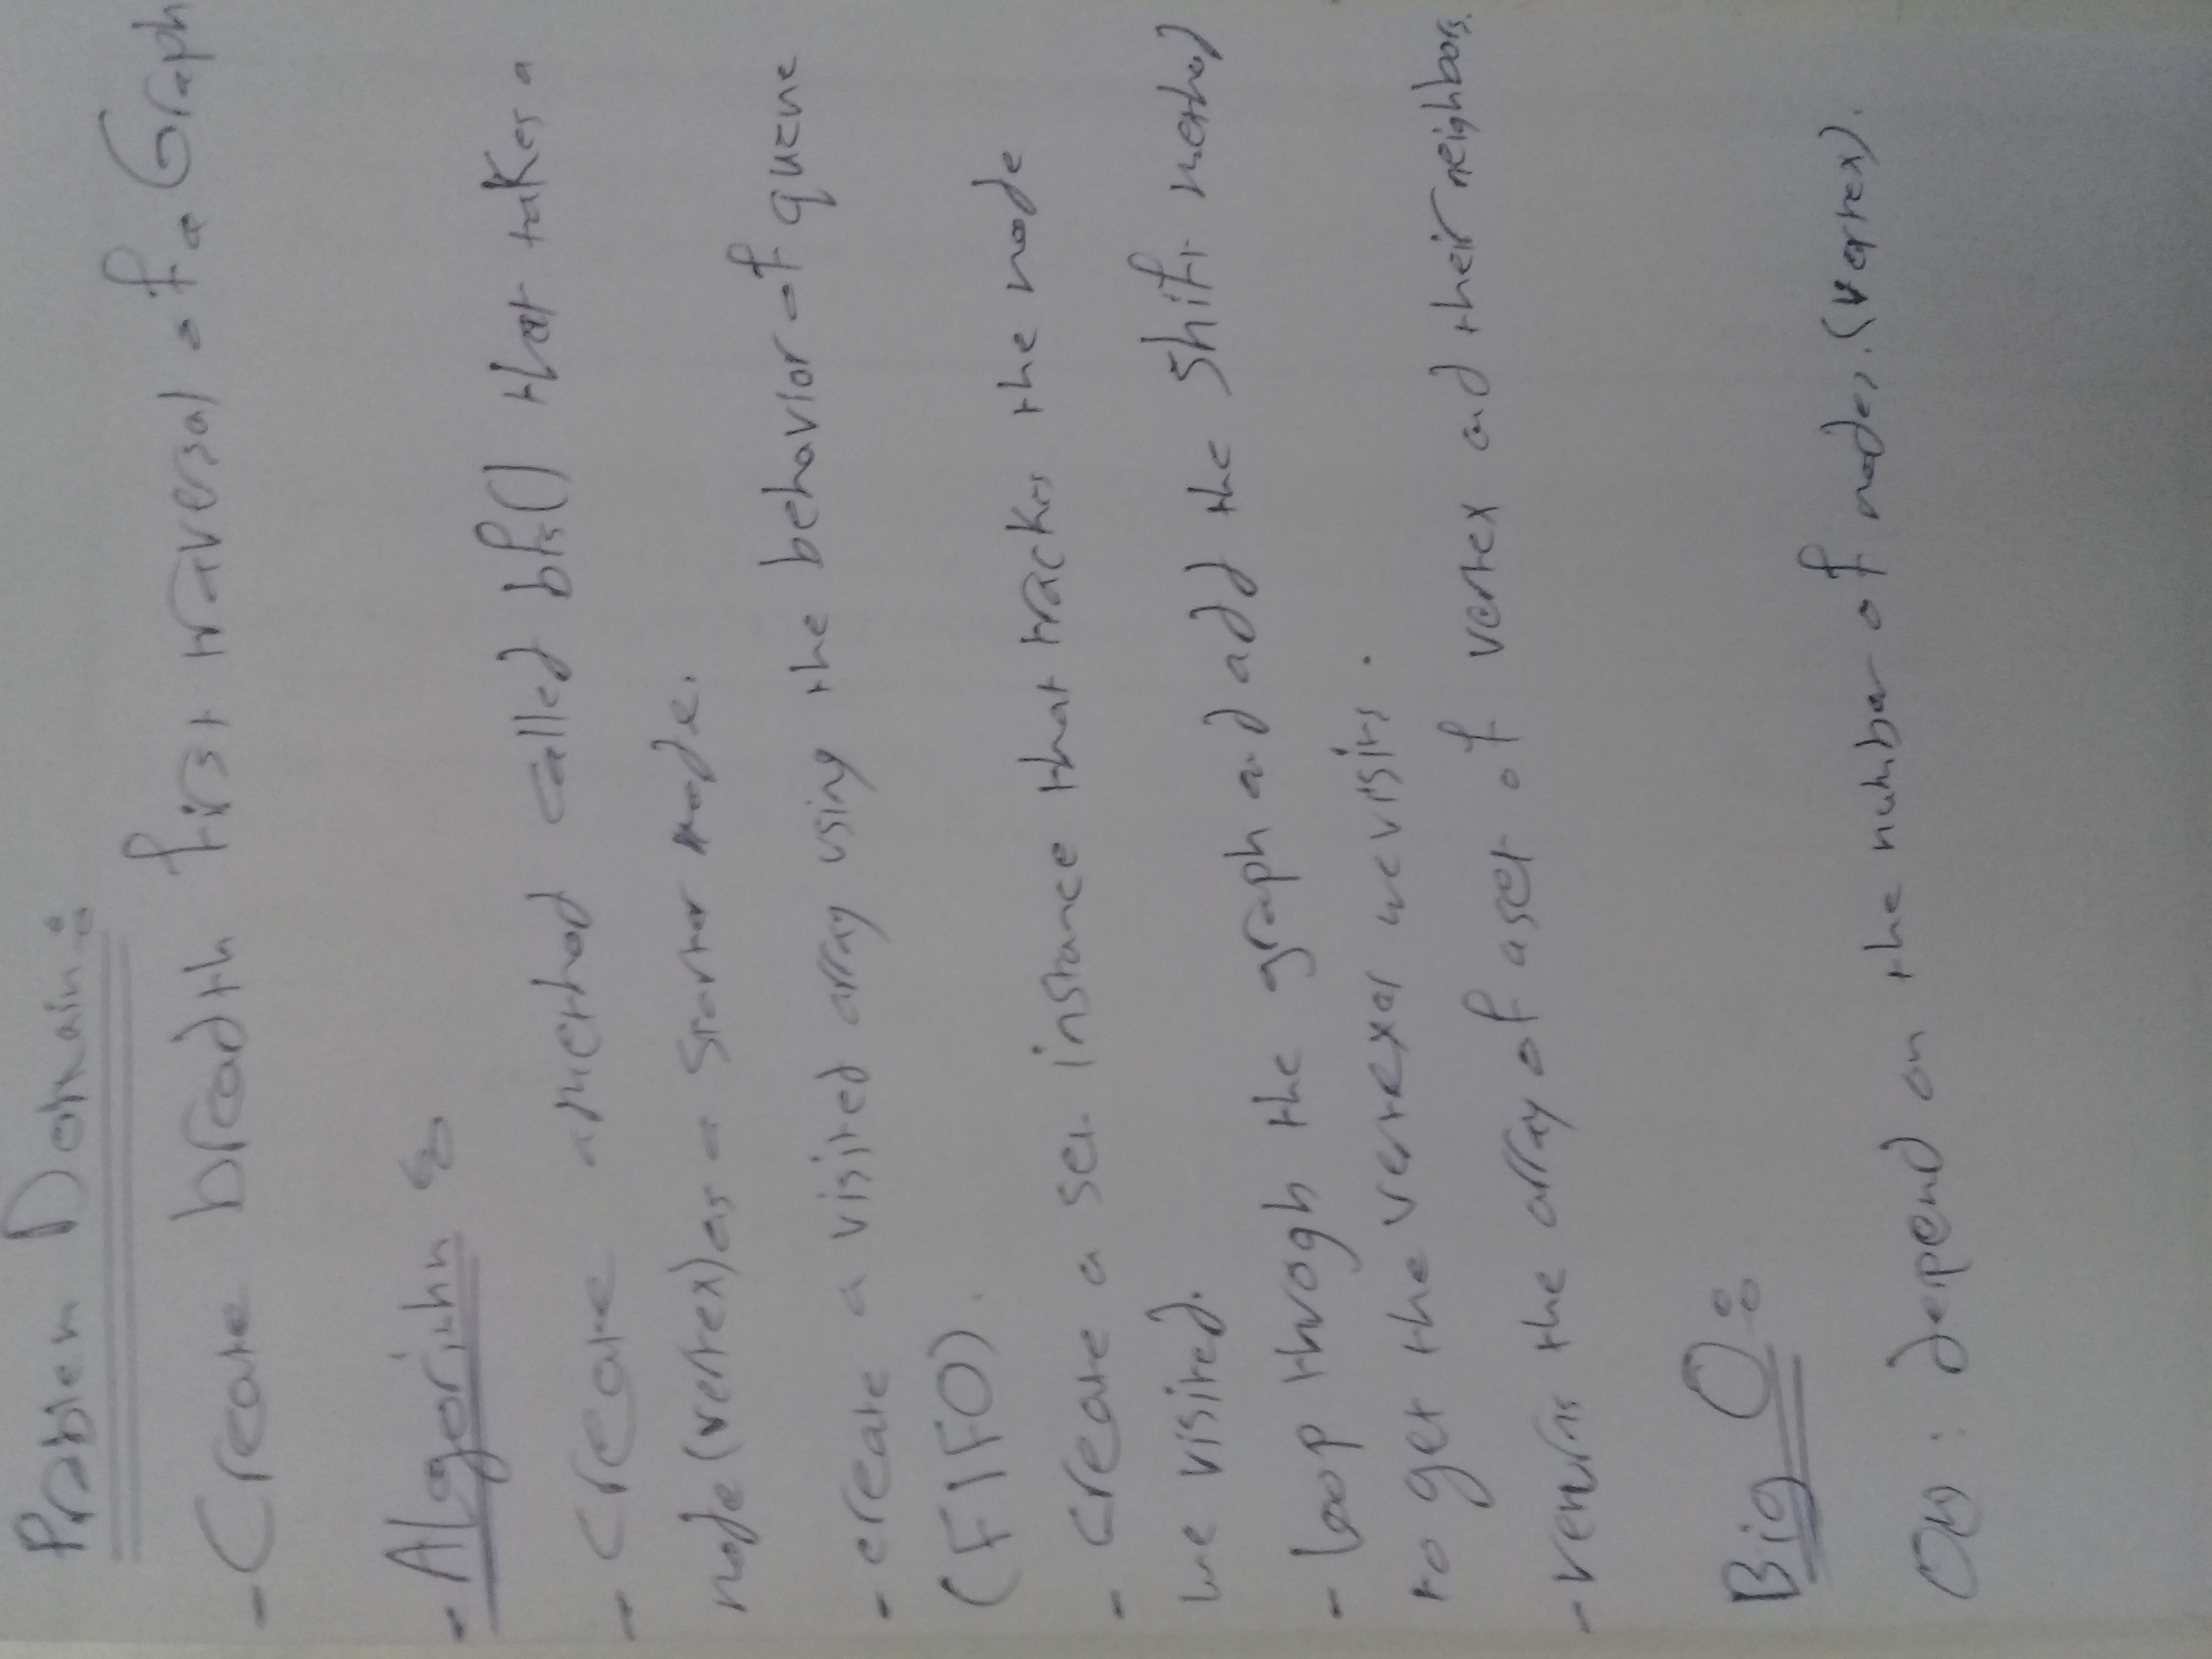 Problem Domain:
- Create breadth first traversal of a Graph
- Algorithm :
- Create a method called bfs() that takes a
node (vertex) as a starter node.
- create a visited array using the behavior of queue
(FIFO).
- create a set instance that tracks the node
we visited.
- loop throgh the graph and add the shift method
to get the vertexes we visits.
- returns the array of a set of vertex and their neighbors.
Big O:
O(n) : depend on the number of nodes. (vertex).